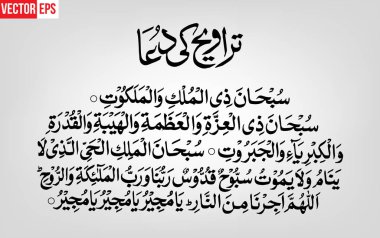 VECTOR EPS
تراویح کی دُعا
سُبْحَانَ ذِی الْمُلْكِ وَالْمَلَكُوْتِ ○
سُبْحَانَ ذِی الْعِزَّةِ وَالْعَظَمَةِ وَالْهَيْبَةِ وَالْقُدْرَةِ
وَالْكِبْرِيَآءِ وَالْجَبَرُوْتِ ○ سُبْحَانَ الْمَلِكِ الْحَیِّ الَّذِیْ لَا
يَنَامُ وَلَا يَمُوْتُ سُبُّوْحٌ قُدُّوْسٌ رَبُّنَا وَرَبُّ الْمَلٰٓئِكَةِ وَالرُّوْحِ ط
اَللّٰهُمَّ اَجِرْنَا مِنَ النَّارِ ط يَا مُجِيْرُ يَا مُجِيْرُ يَا مُجِيْرُ ○